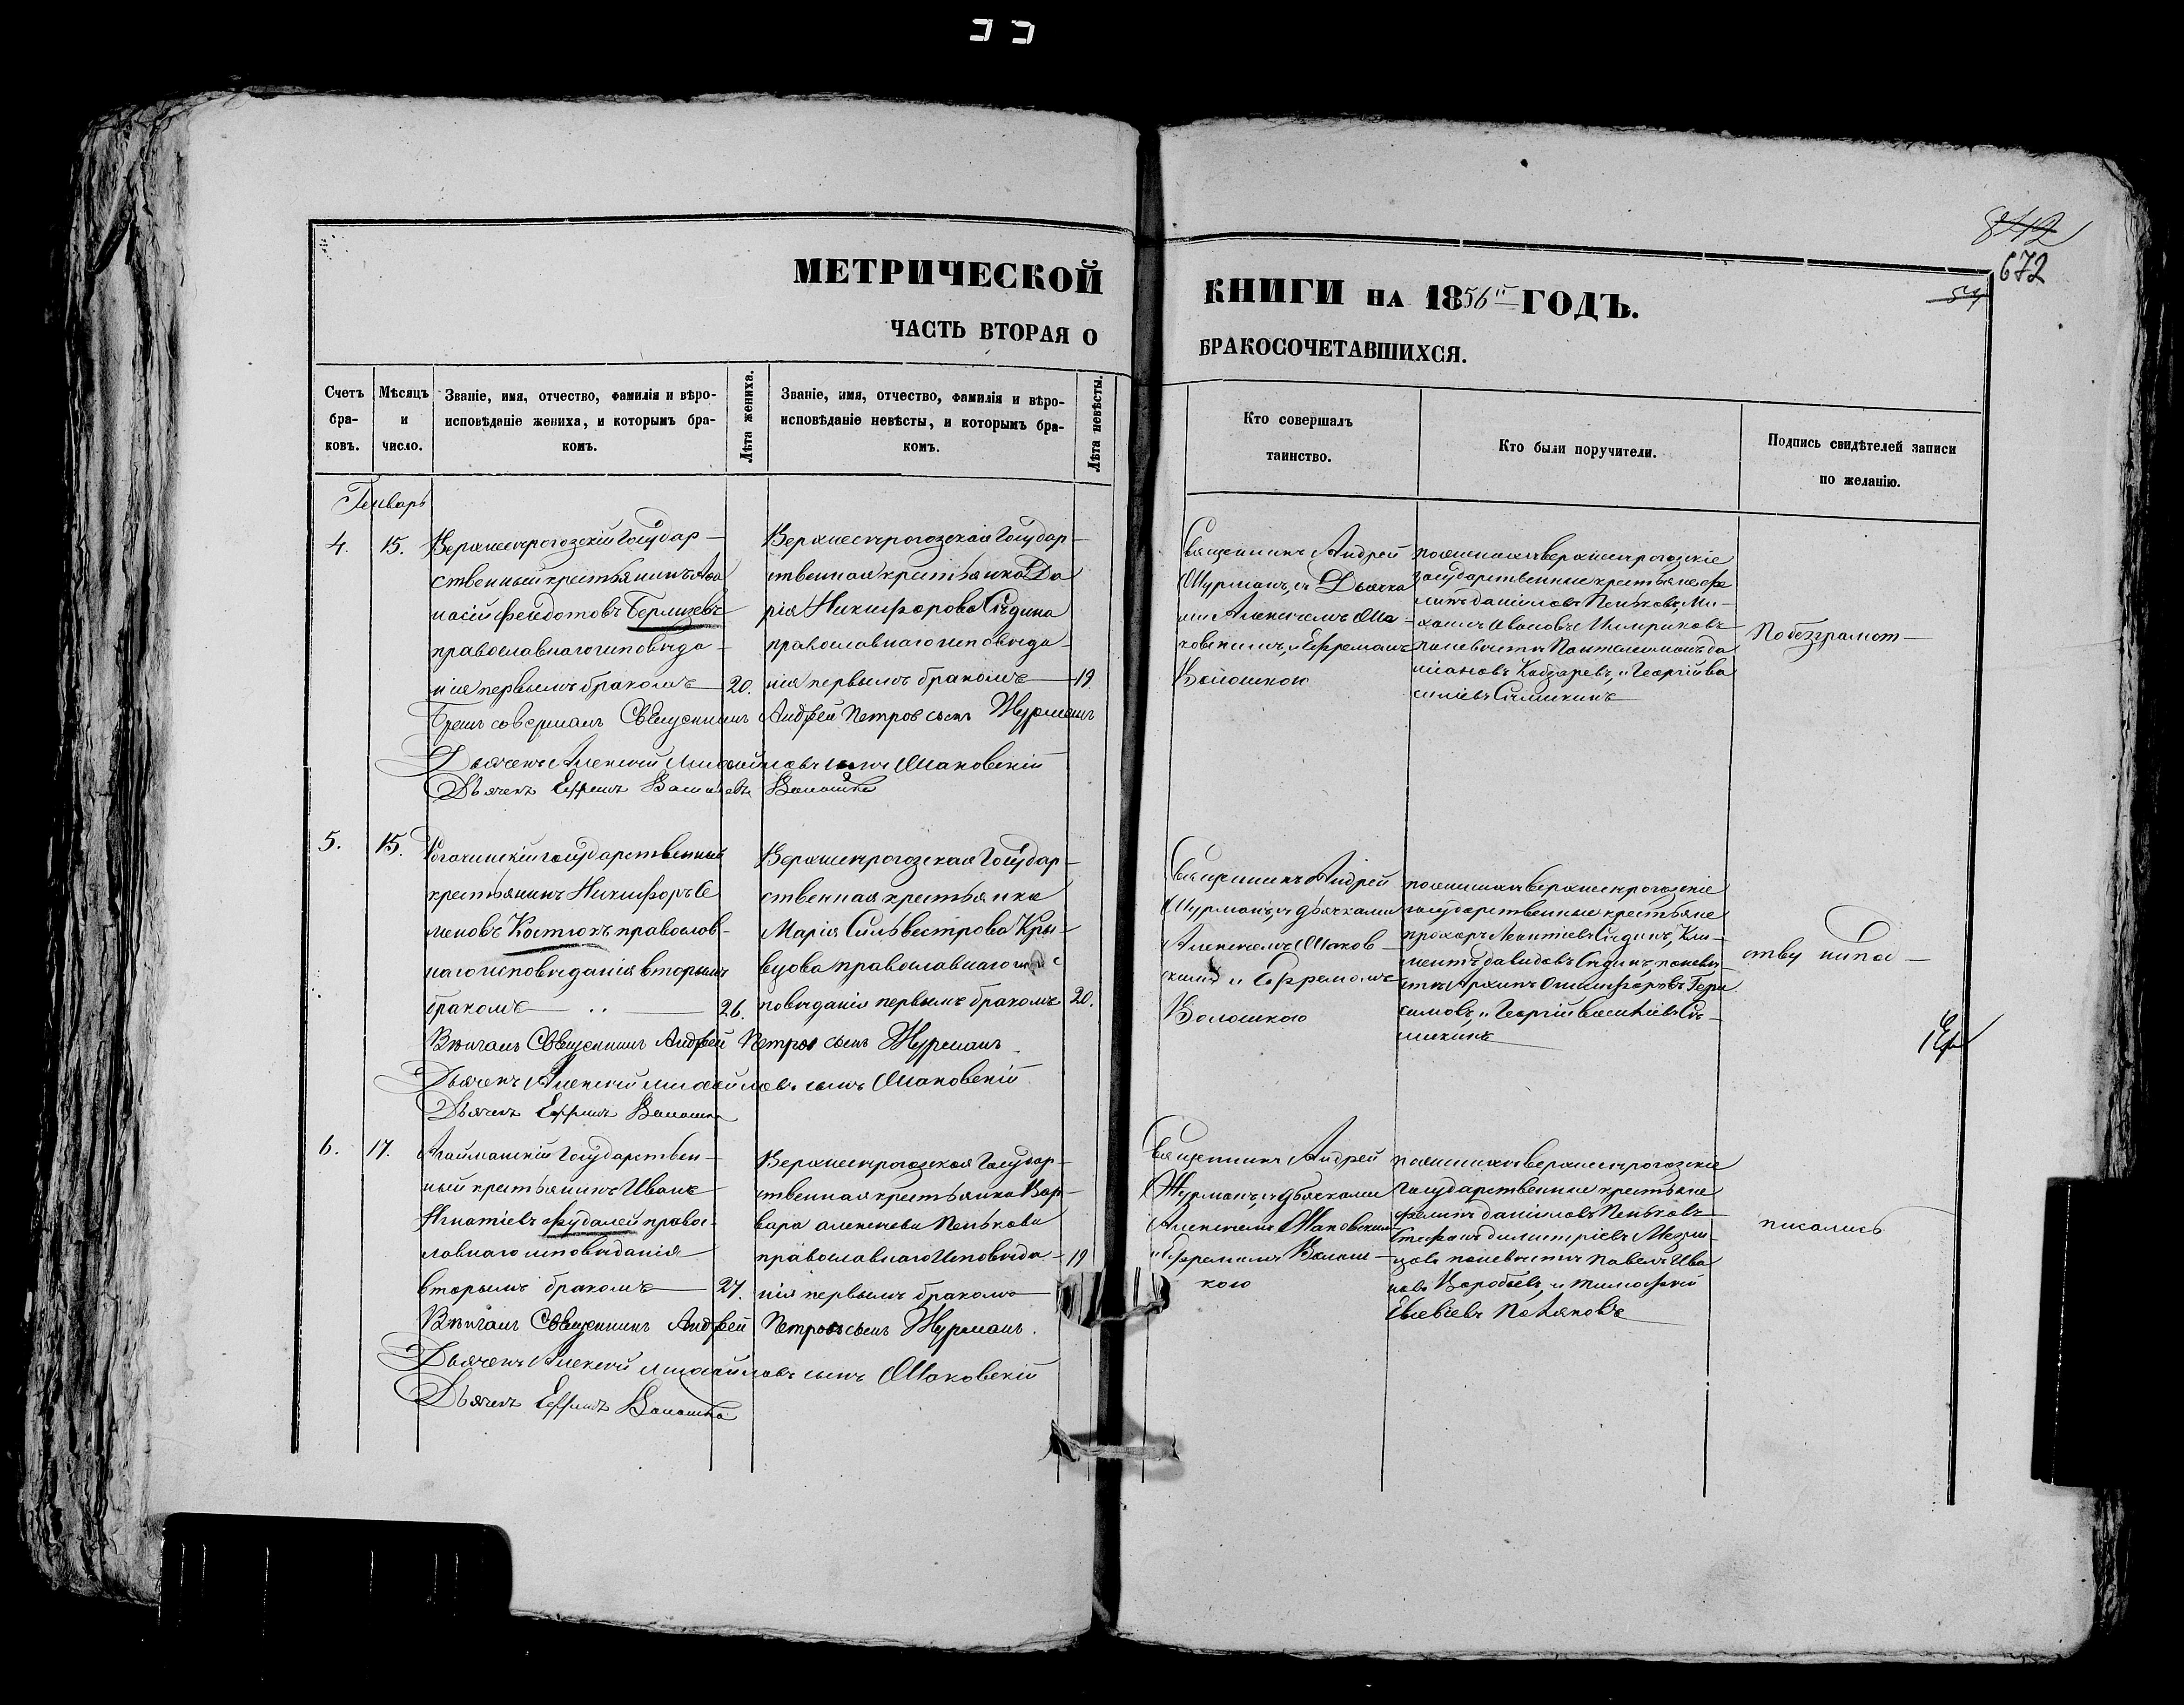 8412
672
54
МЕТРИЧЕСКОЙ КНИГИ НА 1856й ГОДЪ.
ЧАСТЬ ВТОРАЯ О БРАКОСОЧЕТАВШИХСЯ.
Счетъ браковъ.
Мѣсяцъ и число.
Званіе, имя, отчество, фамилія и вѣро-
исповѣданіе жениха, и которымъ бра-
комъ.
Лѣта жениха.
Званіе, имя, отчество, фамилія и вѣро-
исповѣданіе невѣсты, и которымъ бра-
комъ.
Лѣта невѣсты.
Кто совершалъ
таинство.
Кто были поручители.
Подпись свидѣтелей записи
по желанію.
Генварь
4. 15.
Верхнесѣрогозскій Государ-
ственный крестьянинъ Афа
насій Феодотовъ
православнаго исповѣда-
нія первымъ бракомъ 20.
Верхнесѣрогозская Государ-
ственная крестьянка Да
рія Никифорова Сѣдина
православнаго исповѣда-
нія первымъ бракомъ 19.
Священникъ Андрей
Шурманъ, съ Дьячка
ми Алексѣемъ Ма-
ковскимъ, и Ефремомъ
Волошкою
по женихѣ верхнесѣрогозскіе
государственные крестьяне Фи
липъ Даніиловъ Пеньковъ, Ми-
хаилъ Ивановъ
по невѣстѣ Пантелеимонъ Да
міановъ Кобзаревъ, и Георгій Ва
силіевъ
По безграмот-
совершалъ Священникъ Андрей Петров сынъ Шурманъ
Дьячекъ Алексѣй Михайловъ сынъ Маковскій
Дьячекъ Ефремъ Васильевъ Волошка
5. 15.
Рогачинскій государственный
крестьянинъ Никифоръ Се
меновъ Костюкъ православ-
наго исповѣданія вторымъ
бракомъ 26.
Верхнесѣрогозская Государ-
ственная крестьянка
Марія Сильвестрова Кры-
вцова православнаго ис
повѣданія первымъ бракомъ 20.
Священникъ Андрей
Шурманъ, съ дьячками
Алексѣемъ Маков-
скимъ и Ефремомъ
Волошкою
по женихѣ верхнесѣрогозскіе
государственные крестьяне
Прохоръ Леонтіевъ Сѣдинъ, Кли-
ментъ Давидовъ Сѣдинъ, по невѣ
стѣ Архипъ Онисифоровъ Гера
симовъ, и Георгій Василіевъ
ству нипод-
Вѣнчалъ Священникъ Андрей Петров сынъ Шурманъ
Дьячекъ Алексѣй Михайловъ сынъ Маковскій
Дьячекъ Ефремъ Волошка
6. 17.
Агайманскій Государствен-
ный крестьянинъ Иванъ
Игнатіевъ Фудалей правос-
лавнаго исповѣданія
вторымъ бракомъ 27.
Верхнесѣрогозская Государ-
ственная крестьянка Вар-
вара Алексѣева Пенькова
православнаго Исповѣда- 19
нія первымъ бракомъ
Священникъ Андрей
Шурманъ, съ дьячками
Алексѣемъ Маковскимъ
и Ефремомъ Волош-
кою
по женихѣ верхнесѣрогозскіе
Государственные крестьяне
Филипъ Даніиловъ Пеньковъ
Стефанъ Димитріевъ
по невѣстѣ Павелъ Ива
новъ Воробьевъ, и Тимофей
Евсевіевъ Поляковъ
писались
Вѣнчалъ Священникъ Андрей Петровъ сынъ Шурманъ.
Дьячекъ Алексѣй Михайловъ сынъ Маковскій
Дьячекъ Ефремъ Волошка